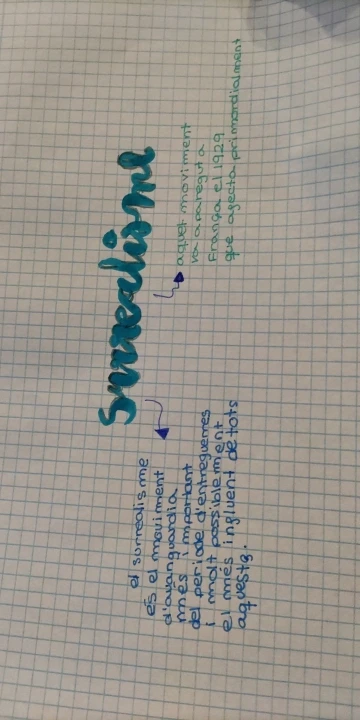 Surrealisme
el surrealisme
és el moviment
d'avanguardia
més important
del període d'entreguerres
i molt possiblement
el més influent de tots
aquests.
aquet moviment
va apareguta
França el 1929
que afecta primordialment